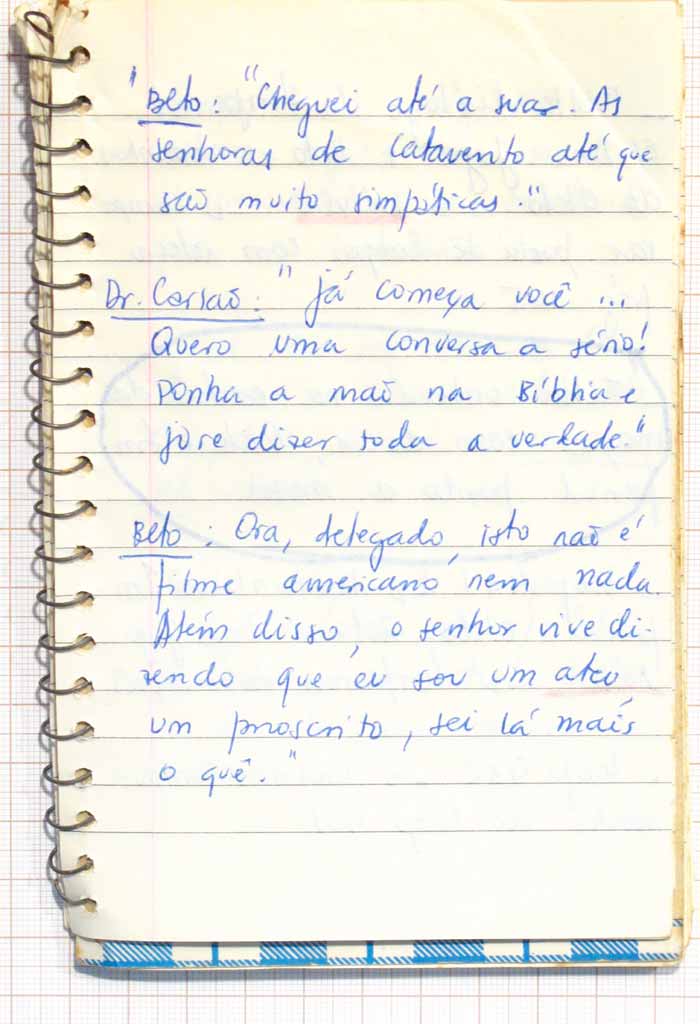 "Beto: "Cheguei até a suar. As
senhoras de Catavento até que
são muito simpáticas."
Dr. Corsaõ: "Já começa você ...
Quero uma conversa a sério!
Ponha a mão na Bíblia e
jure dizer toda a verdade."
Beto: Ora, delegado, isto não é
filme americano, nem nada.
Além disso, o senhor vive di-
zendo que eu sou um ateu
um proscrito, sei lá mais
o quê."